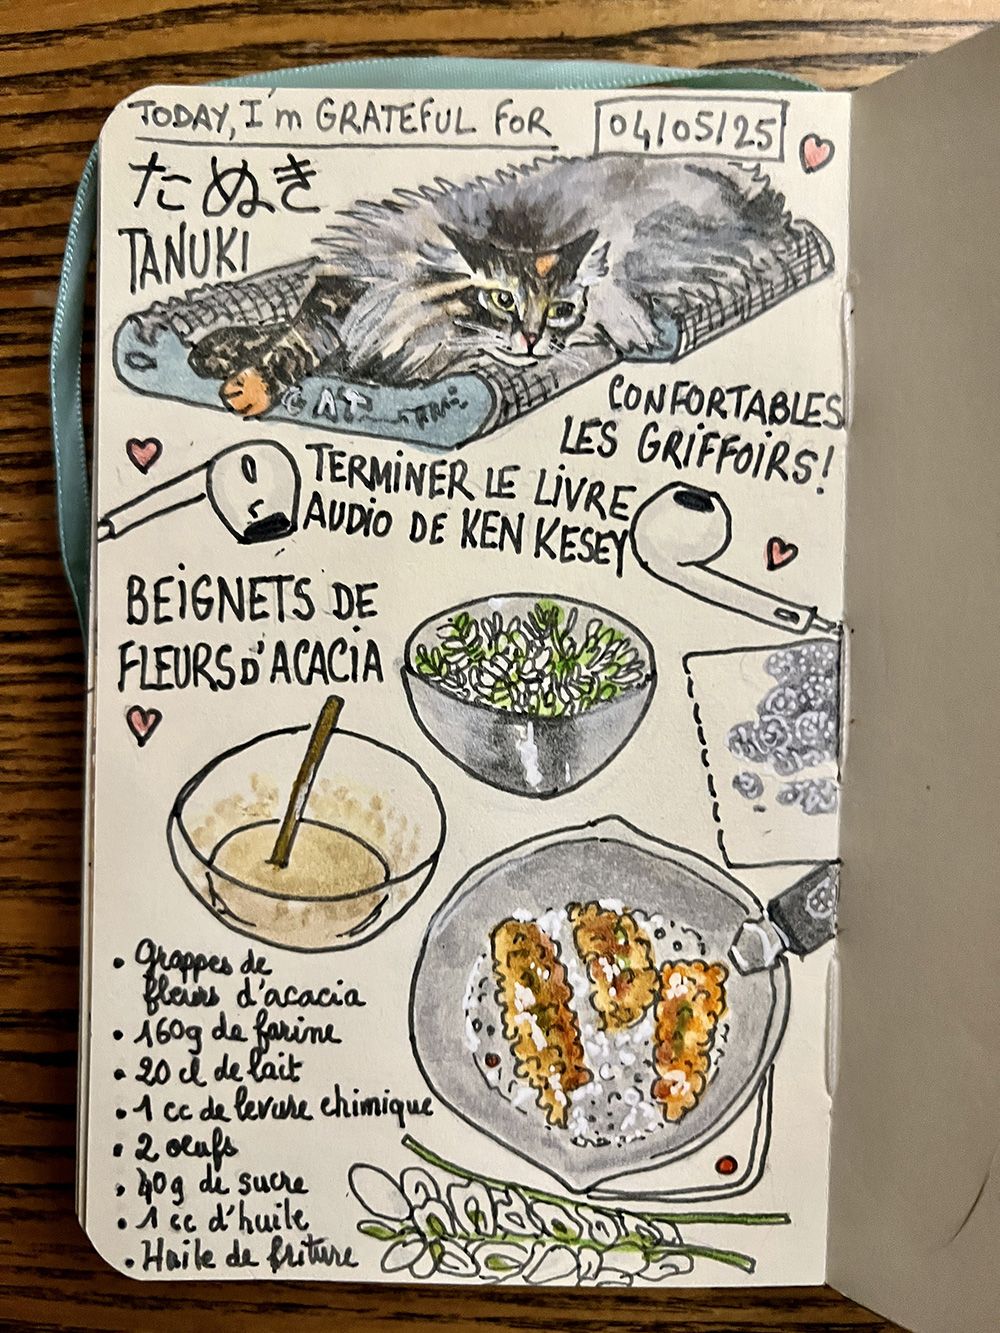 TODAY, I'm GRATEFUL FOR
04/05/25
たぬき
TANUKI
CAT
CONFORTABLES
LES GRIFFOIRS!
TERMINER LE LIVRE
AUDIO DE KEN KESEY
BEIGNETS DE
FLEURS D'ACACIA
• Grappes de
fleurs d'acacia
• 160g de farine
• 20 cl de lait
• 1 cc de levure chimique
• 2 oeufs
• 40g de sucre
• 1 cc d'huile
• Huile de friture